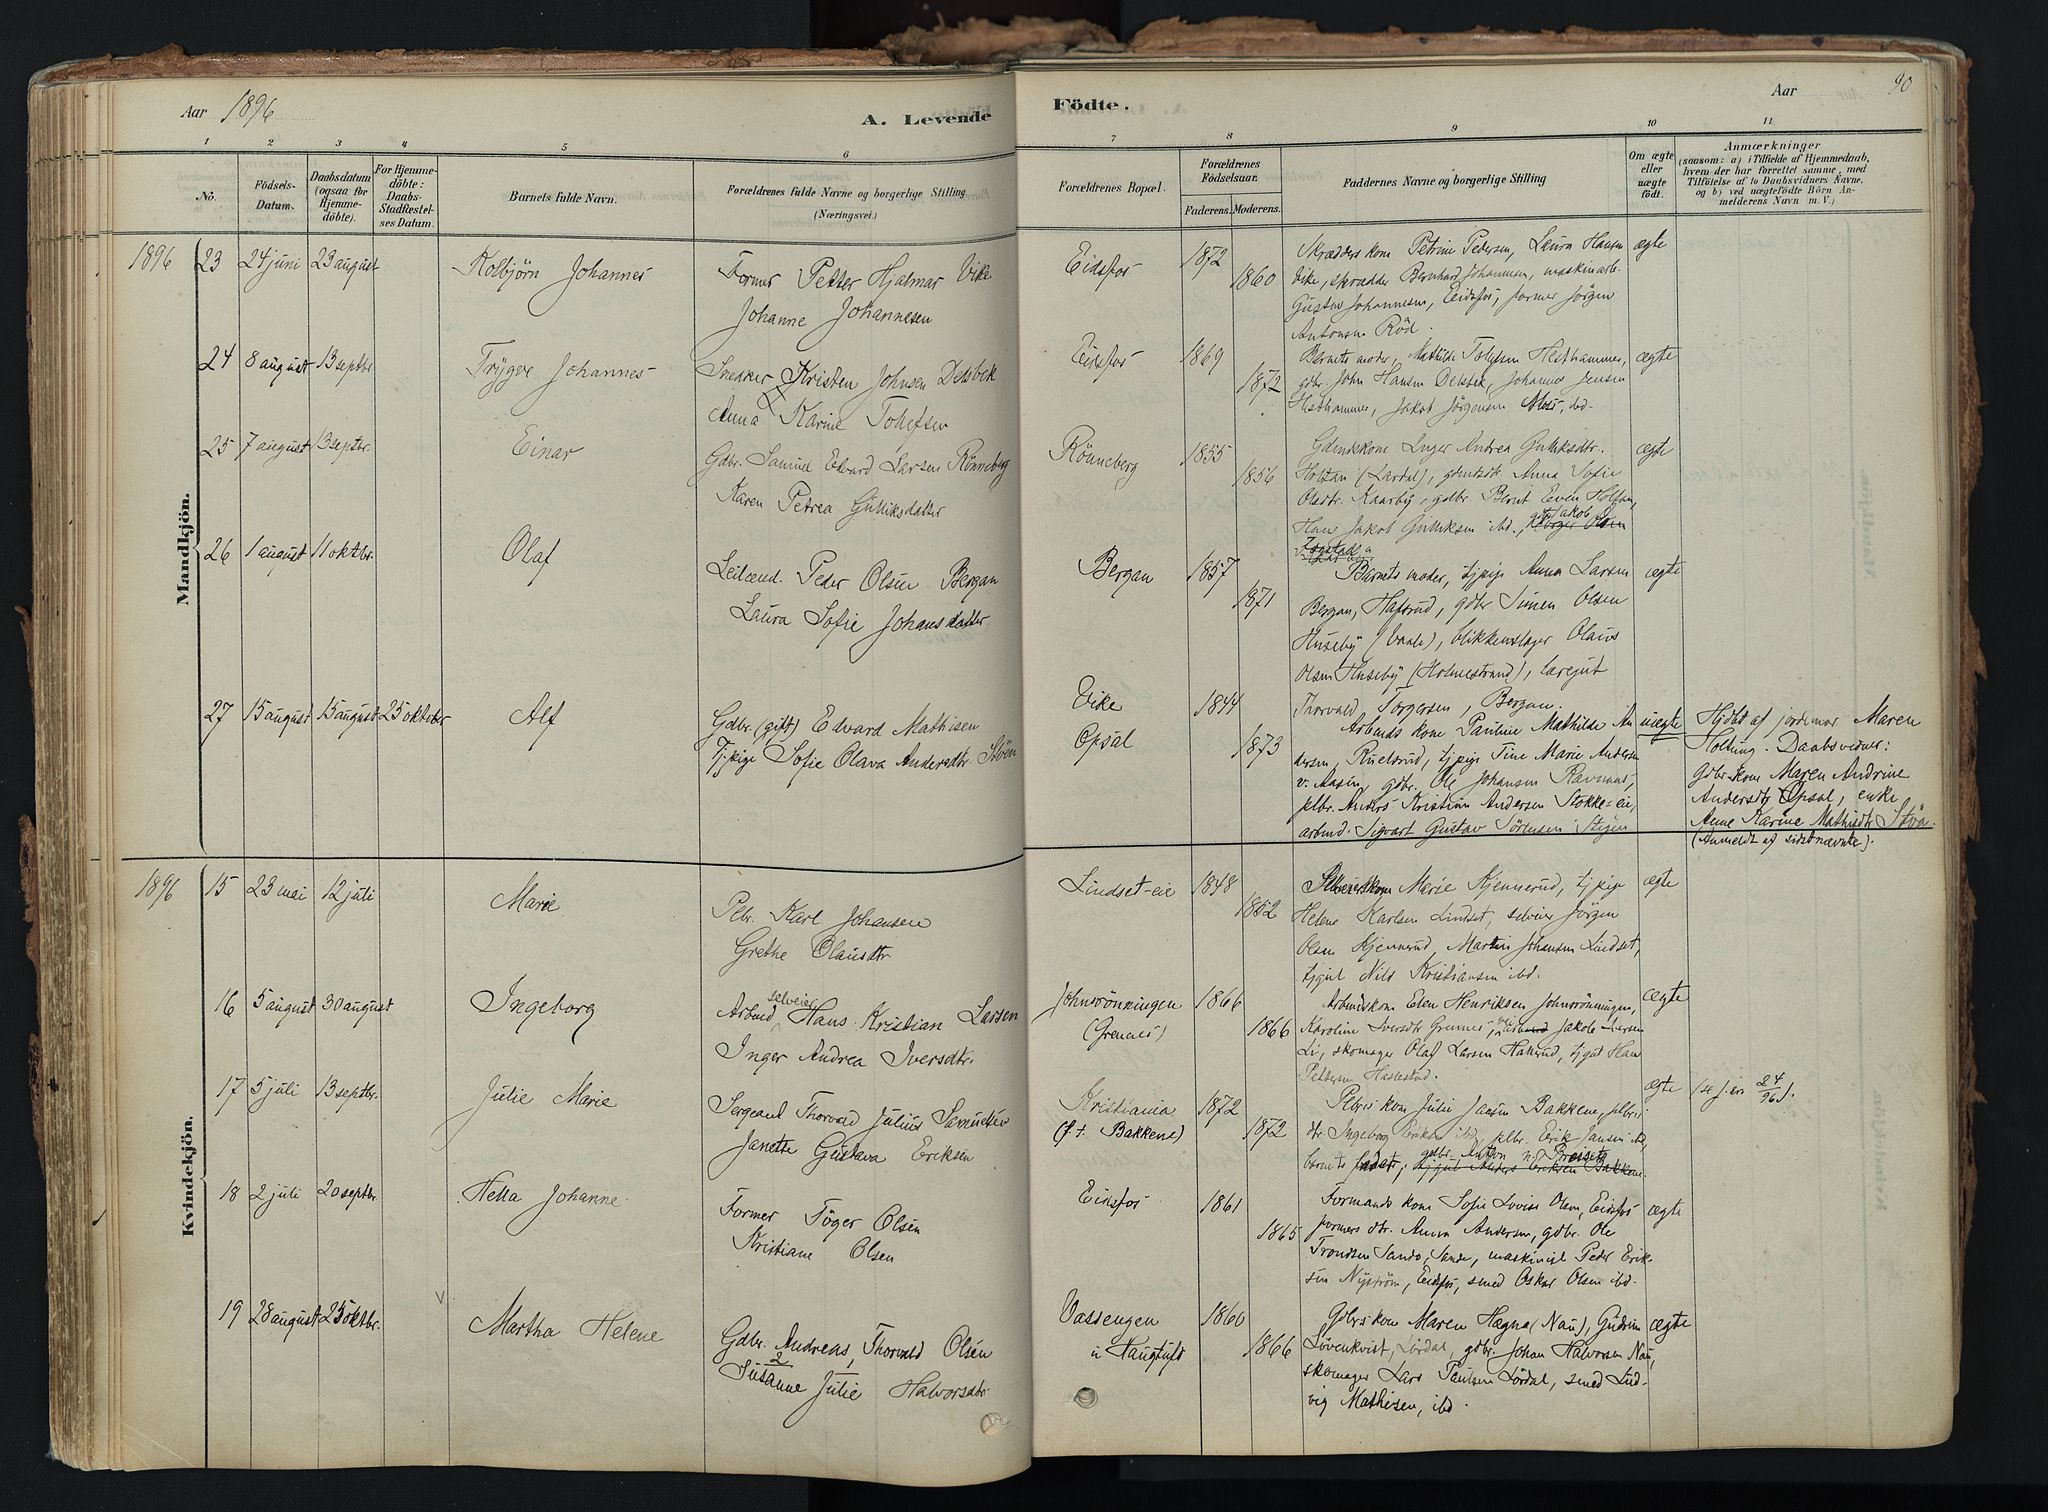 Aar 1896
A. Levende
Födte.
Aar
90
1 2 3 4 5 6 7 8 9 10 11
No.
Födsels-
Datum.
Daabsdatum
(ogsaa for
Hjemme-
döbte).
For Hjemme-
döbte:
Daabs-
Stadfæstel-
ses Datum.
Barnets fulde Navn.
Forældrenes fulde Navne og borgerlige Stilling
(Næringsvei.)
Forældrenes Bopæl.
Forældrenes
Födselsaar.
Faderens. Moderens.
Faddernes Navne og borgerlige Stilling
Om ægte
eller
uægte
födt.
Anmærkninger
(saasom: a) i Tilfælde af Hjemmedaab,
hvem der har forrettet samme, med
Tilföielse af to Daabsvidners Navne.
og b) ved uægtefödte Börn An-
melderens Navn m. V.)
Mandkjön.
1896 23 24 juni 23 august
Kolbjörn Johannes
Former Petter Hjalmar Vike
Johanne Johannesen
Eidsfos
1872
1860
Skrædders kone Petrine Pedersen, Laura Hansen
Vike, skrædder Bernhard Johannesen, maskinarb.
Gustav Johannesen, Eidsfos, former Jörgen
Antonsen Röd.
ægte
24 8 august 13 septbr.
Trygve Johannes
Snedker Kristen Johnsen Delsbek
Anna Karine Tollefsen
Eidsfos
1869
1872
Barnets moder, Mathilde Tollefsen Hesthammer,
gdbr. John Hansen Delsbek, Johannes Jensen
Hesthammer, Jakob Jörgensen Moes, ibd.
ægte
25 7 august 13 septbr.
Einar
Gdbr. Samuel Edvard Larsen Rönneberg
Karen Petrea Gulliksdatter
Rönneberg
1855
1856
Gdmdskone Inger Andrea Gulliksdtr.
Holtan (Lardal), gdmdsdtr. Anna Sofie
Olsdtr. Kaarby, gdbr. Bernt Even Holtan,
Hans Jakob Gulliksen ibd.,
ægte
26 1 august 11 oktbr.
Olaf
Leilænd. Peder Olsen Bergan
Laura Sofie Johansdatter
Bergan
1857
1871
Barnets moder, tjpige Anna Larsen
Bergan, Hafsrud, gdbr Simen Olsen
Huseby (Vaale), blikkenslager Olaus
Olsen Huseby (Holmestrand), læregut
Thorvald Torgersen, Bergan.
ægte
27 15 august 15 august 25 oktober
Alf
Gdbr. (gift) Edvard Mathisen
Tj.pige Sofie Olava Andersdtr. Stöen
Vike
Opsal
1844
1873
Arbmds kone Pauline Mathilde An
dersen, Ruelsrud, tjpige Tine Marie Andersen
v. Aasen, gdbr. Ole Johansen Ravnaas,
plbr. Anders Kristian Andersen Stokke-eie,
arbmd. Sigvart Gustav Sörensen Stigen
uægte
Hjdbt af jordemor Maren
Holtung. Daabsvidner:
Gdbr. kone Maren Andrine
Andersdtr Opsal, enke
Anne Karine Mathisdtr Stöa.
(Anmeldt af sidstnævnte).
Kvindekjön.
1896 15 23 mai 12 juli
Marie
Plbr. Karl Johansen
Grethe Olausdtr.
Lindset-eie
1848
1852
Selveierskone Marie Kjennerud, tjpige
Helene Karlsen Lindset, selveier Jörgen
Olsen Kjennerud, Martin Johansen Lindset,
tjgut Nils Kristiansen ibd.
ægte
16 5 august 30 august
Ingeborg
selveier
Arbmd Hans Kristian Larsen
Inger Andrea Iversdtr.
Johnsrönningen
(Grennes)
1866
1866
Arbmdskone Elen Henriksen Johnsrönningen,
Karoline Iversdtr Grennes, Jakob Iversen
Li, skomager Olaf Larsen Hallerud, tjgut Hans
Pettersen Haslestad.
ægte
17 5 juli 13 septbr.
Julie Marie
Sergeant Thorvald Julius Samuelsen
Janette Gustava Eriksen
Kristiania
(f. t. Bakkene)
1872
1872
Plbrs kone Julie Jansen Bakkene, plbrs
dtr Ingeborg Eriksen ibd, plbr. Erik Jansen ibd,
gdbr. Anton
barnets fader, tjgut Anders Eriksen Bakkene
ægte
24/96).
18 2 juli 20 septbr.
Hella Johanne
Former Töger Olsen
Kristiane Olsen
Eidsfos
1861
1865
Formands kone Sofie Lovise Olsen, Eidsfos
formers dtr. Anna Andersen, gdbr. Ole
Trondsen Sando, Sande, maskinist Peder Erik-
sen Nyström, Eidsfos, smed Oskar Olsen ibd.
ægte
19 28 august 25 oktbr.
Martha Helene
Gdbr. Andreas Thorvald Olsen
2
Susanne Julie Halvorsdtr.
Vassengen
u Haugtuft
1860
1866
Gdbrs kone Maren Hægna (Nau), Gudrun
Lövenkvist, Lördal, gdbr. Johan Halvorsen Nau,
skomager Lars Paulsen Lördal, smed Lud-
vig Mathisen, ibd.
ægte